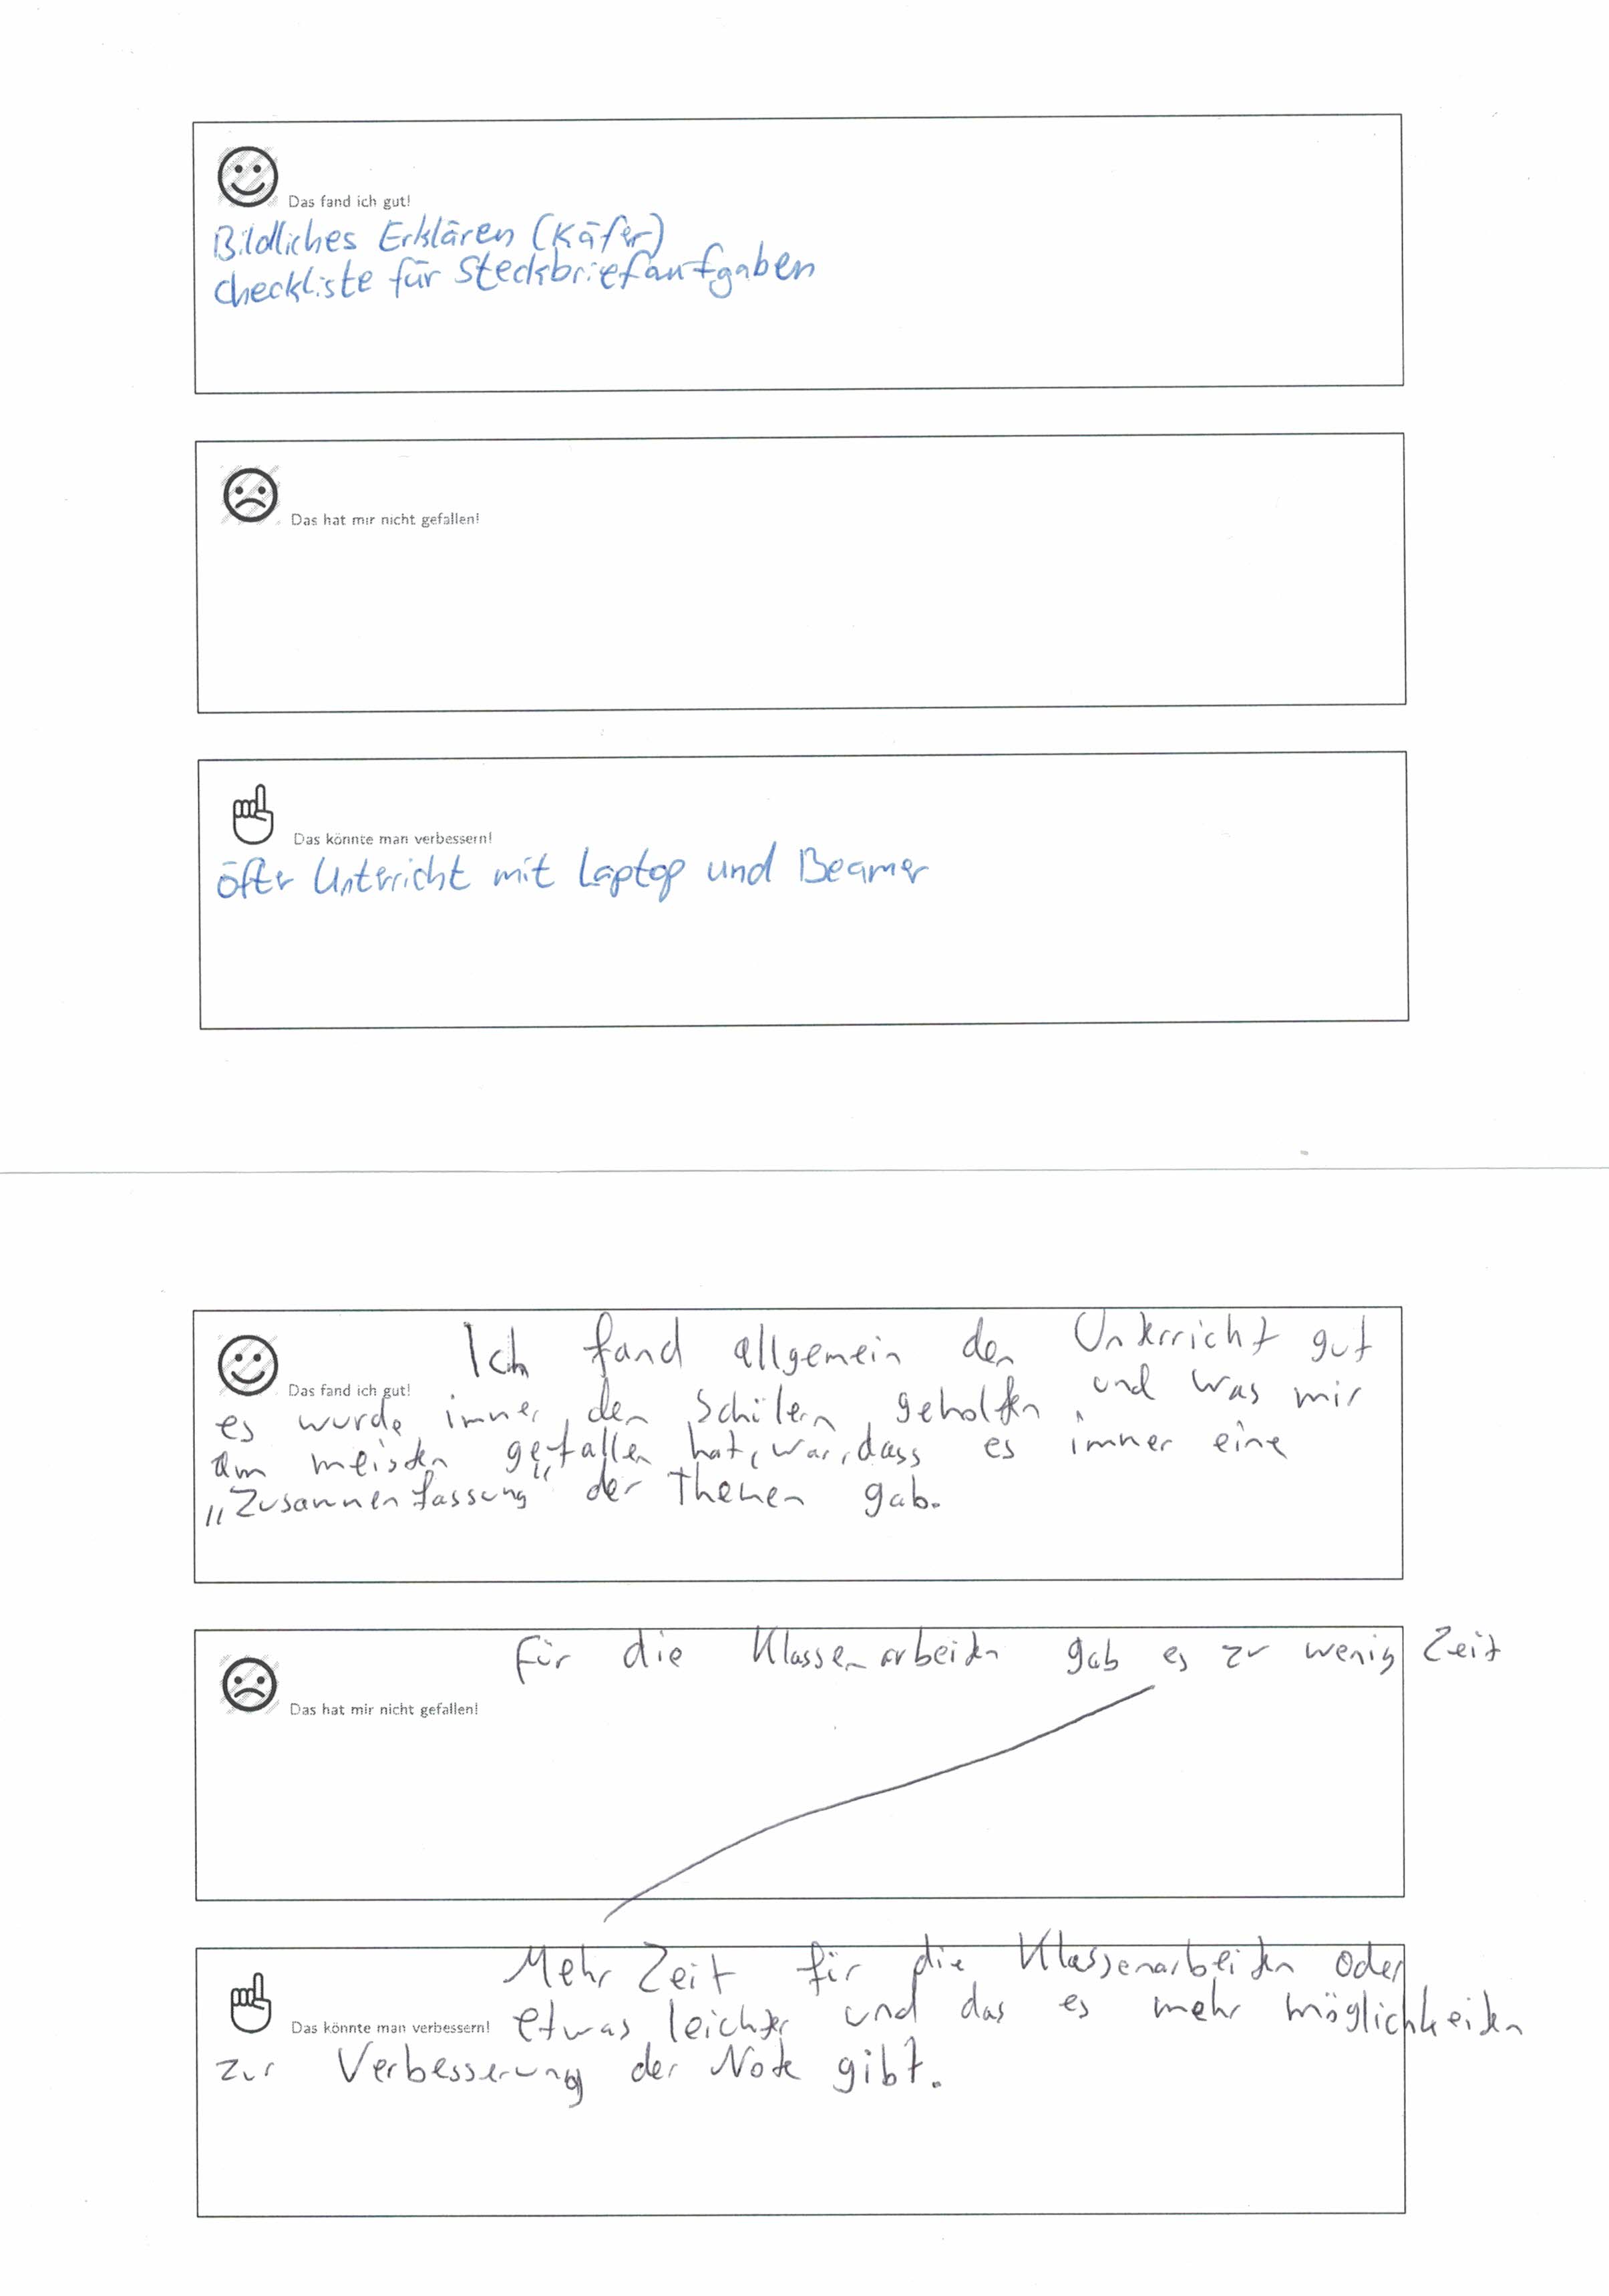 Das fand ich gut!
Bildliches Erklären (Käfer)
Checkliste für Steckbriefaufgaben
Das hat mir nicht gefallen!
Das könnte man verbessern!
öfter Unterricht mit Laptop und Beamer
Ich fand allgemein den Unterricht gut
Das fand ich gut!
es wurde immer den Schülern geholfen und was mir
am meisten gefallen hat, war, dass es immer eine
„Zusammenfassung" der Themen gab.
Für die Klassenarbeiten gab es zu wenig Zeit
Das hat mir nicht gefallen!
Mehr Zeit für die Klassenarbeiten oder
Das könnte man verbessern! etwas leichter und das es mehr möglichkeiten
zur Verbesserung der Note gibt.